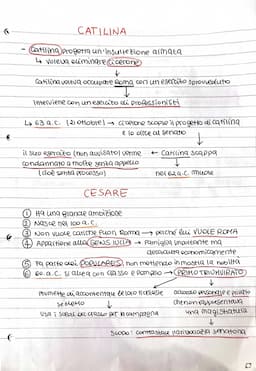 CATILINA
- Catilina progetta un'insurrezione armata
↳ voleva eliminare Cicerone
Catilina voleva occupare Roma con un esercito sprovveduto
Interviene con un esercito di professionisti
↳ 63 a.C. (21 ottobre) → Cicerone scopre il progetto di Catilina
e lo dice al senato
il suo esercito (non avvisato) viene ← Catilina scappa
condannato a morte senza appello
(cioè senza processo)
nel 62 a.C. muore
CESARE
① Ha una grande ambizione
② Nasce nel 100 a.C.
③ Non vuole cariche fuori Roma → perché lui VUOLE ROMA
④ Appartiene alla GENS IULIA → Famiglia importante ma
decaduta economicamente
⑤ Fa parte dei POPULARES, non mettendo in mostra la nobiltà
⑥ 60 a.C. si allea con Crasso e Pompeo → PRIMO TRIUMVIRATO
promette di accontentare le loro richieste
se eletto
accordo personale e privato
che non rappresentava
una magistratura
usa i soldi di Crasso per la campagna
scopo: contrastare l'aristocrazia senatoria